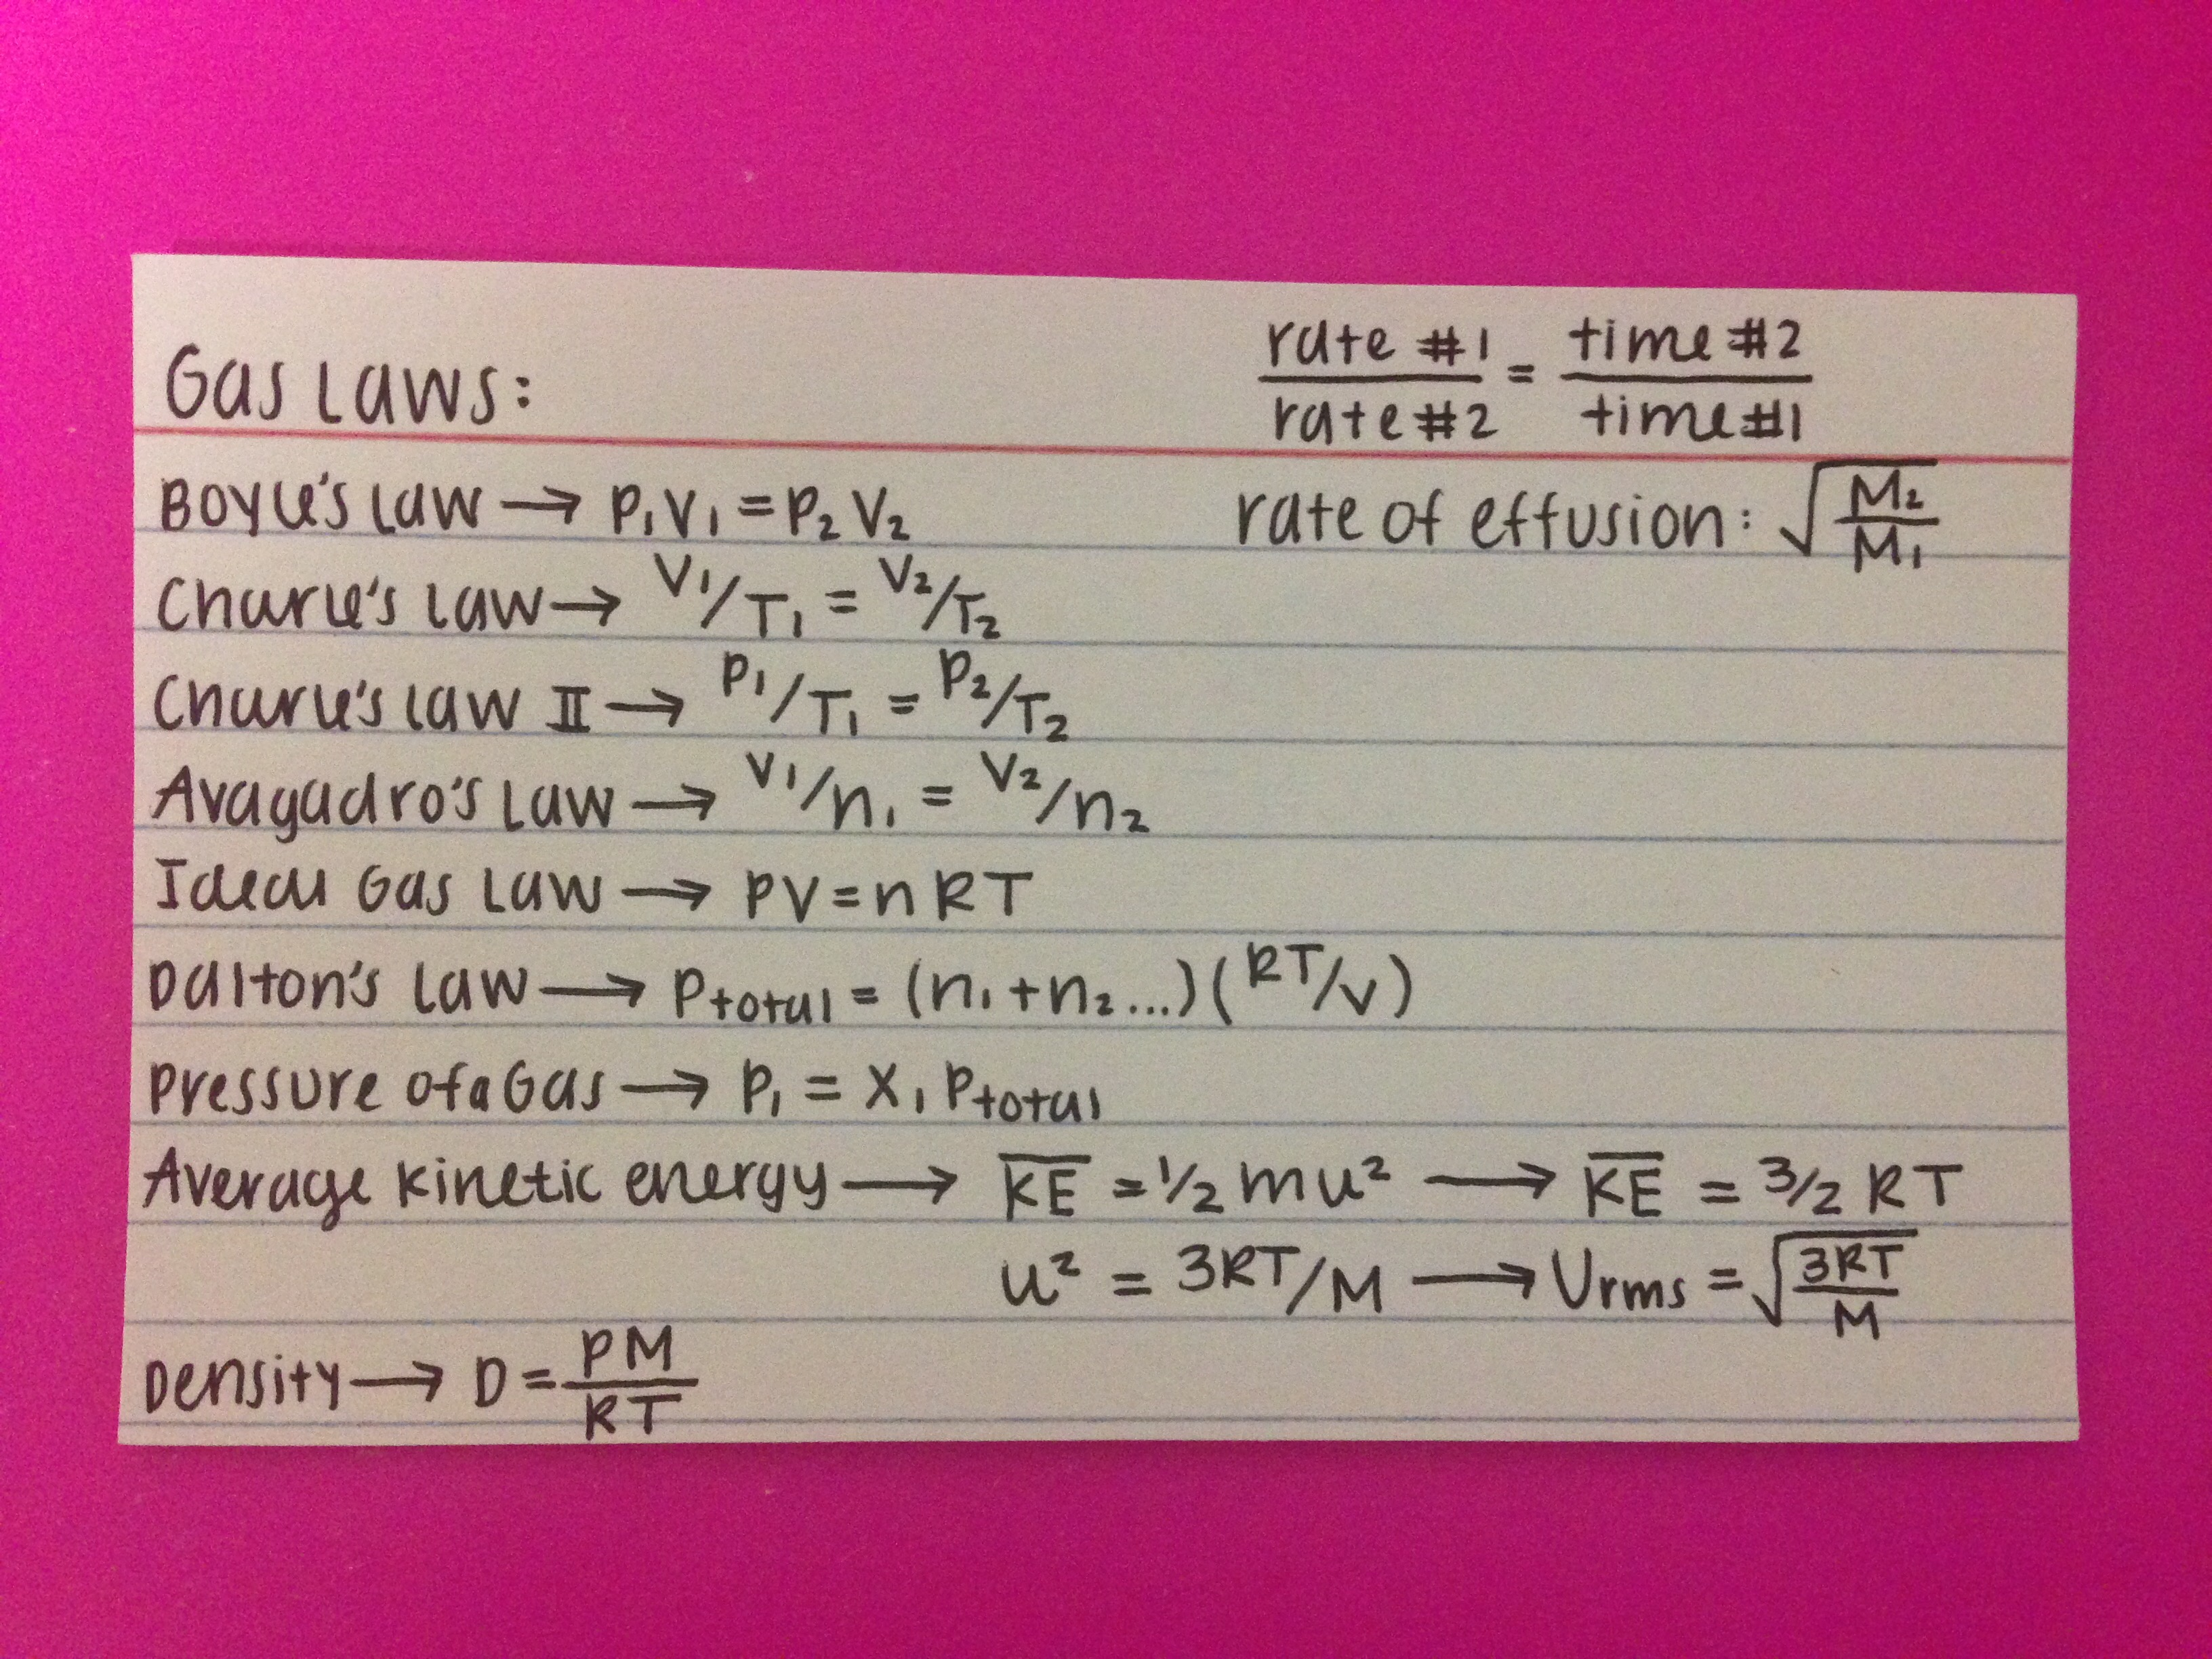 Gas Laws:
rate #1 / rate #2 = time #2 / time #1
Boyle's Law → P₁V₁ = P₂V₂
rate of effusion: √(M₂/M₁)
Charle's Law → V₁/T₁ = V₂/T₂
Charle's Law II → P₁/T₁ = P₂/T₂
Avagadro's Law → V₁/n₁ = V₂/n₂
Ideal Gas Law → PV = nRT
Dalton's Law → Ptotal = (n₁ + n₂...)(RT/V)
Pressure of a Gas → P₁ = X₁ Ptotal
Average kinetic energy → K̅E̅ = 1/2 mu² → K̅E̅ = 3/2 RT
u² = 3RT/M → Urms = √(3RT/M)
Density → D = PM/RT